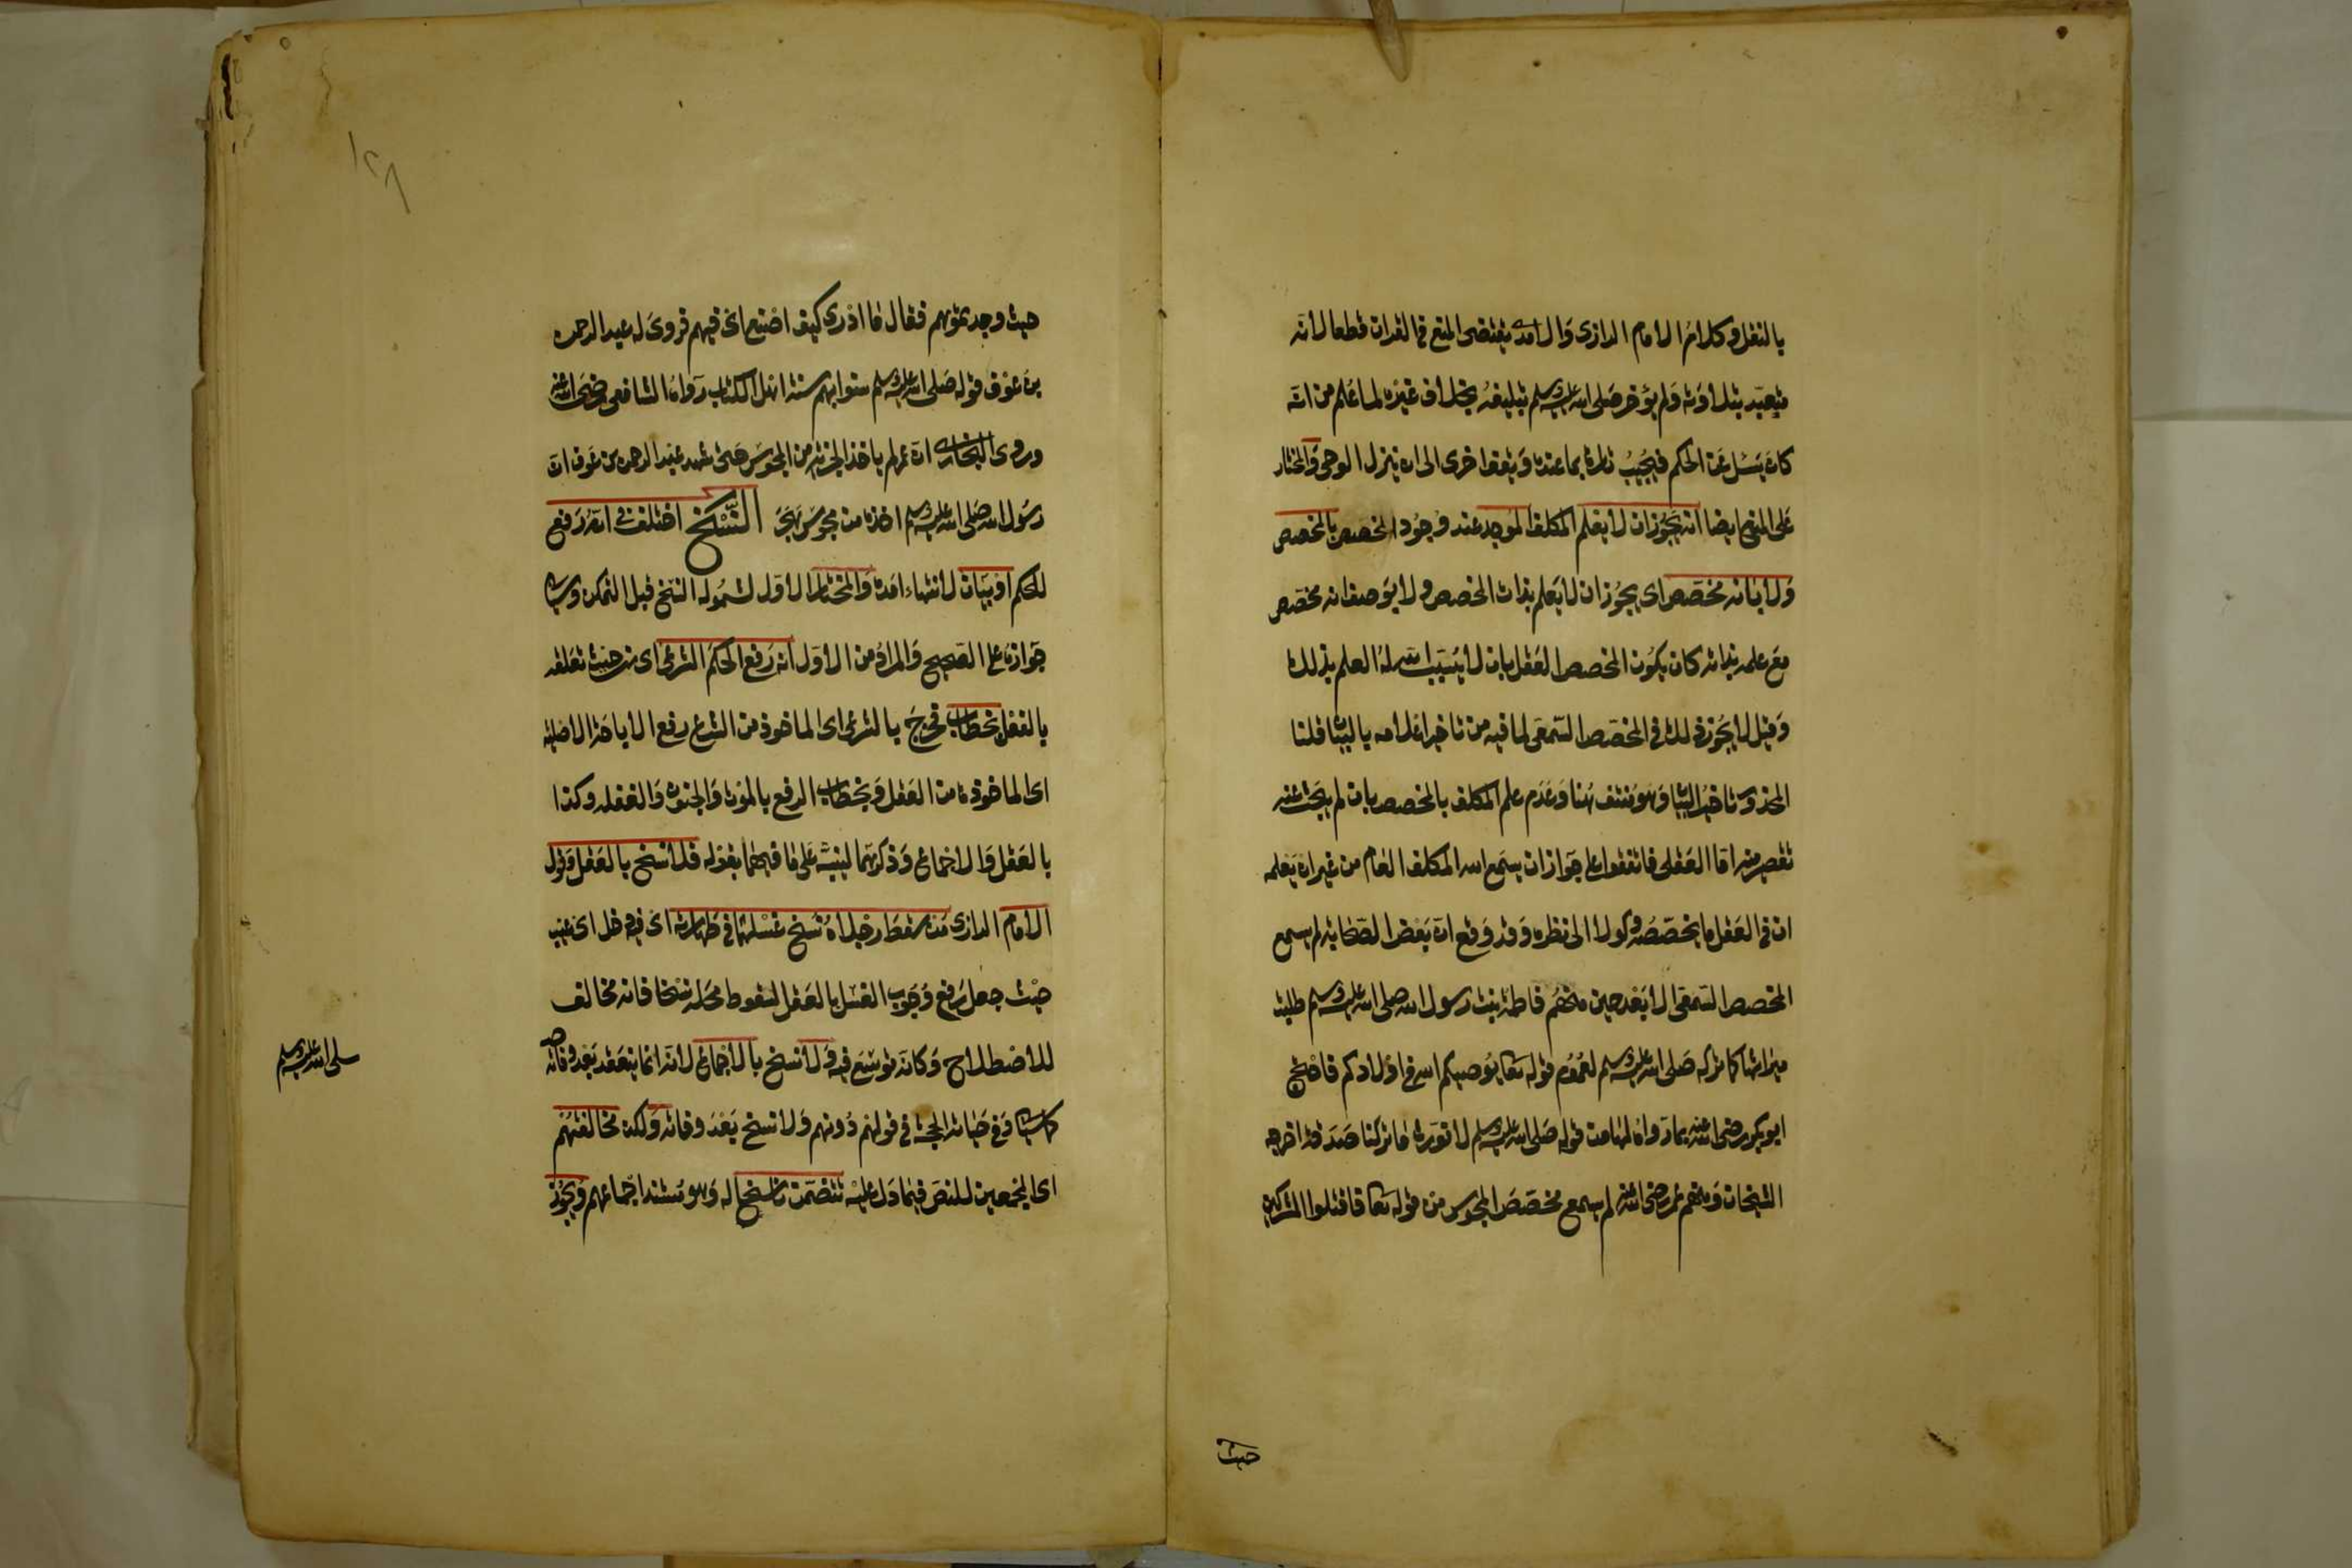 بالنقل وكلام الامام الرازى والامدى يقتضى المنع فى القران قطعا لانه
متعبد بتلاوته ولم يؤخر صلى الله عليه وسلم تبليغه بخلاف غيره لما علم من انه
كان يسئل عن الحكم فيجيب تارة بما عنده ويقف اخرى الى ان ينزل الوحى والمختار
على المنع ايضا انه يجوز ان لا يعلم المكلف الموجد عند وجود المخصص بالمخصص
ولا بانه مخصص اى يجوز ان لا يعلم بذات المخصص ولا بوصف انه مخصص
مع علمه بذاته كان يكون المخصص العقل بان لا يسبب الله له العلم بذلك
وقيل لا يجوز ذلك فى المخصص السمعى لما فيه من تاخير اعلامه بالبيان قلنا
المحذور تاخير البيان وهو منتف هنا وعدم علم المكلف بالمخصص بان لم يبحث عنه
تقصير منه اما العقلى فاتفقوا على جواز ان يسمع الله المكلف العام من غير ان يعلمه
ان فى العقل ما يخصصه وكولا الى نظره وقد وقع ان بعض الصحابة لم يسمع
المخصص السمعى الا بعد حين منهم فاطمة بنت رسول الله صلى الله عليه وسلم طلبت
ميراثها مما تركه صلى الله عليه وسلم لعموم قوله تعا يوصيكم الله فى اولادكم فاحتج
ابو بكر رضى الله عنه بما رواه لها من قوله صلى الله عليه وسلم لا نورث ما تركنا صدقة اخرجه
الشيخان ومنهم عمر رضى الله عنه لم يسمع مخصص المجوس من قوله تعا فاقتلوا المشركين
حيث
١٢٨
حيث وجدتموهم فقال ما ادرى كيف اصنع اى فيهم فروى له عبد الرحمن
بن عوف قوله صلى الله عليه وسلم سنوا بهم سنة اهل الكتاب رواه الشافعى رضى الله عنه
وروى البخارى ان عمر لم ياخذ الجزية من المجوس حتى شهد عبد الرحمن بن عوف ان
رسول الله صلى الله عليه وسلم اخذها من مجوس هجر النسخ اختلف فى انه رفع
للحكم او بيان لانتهاء امده والمختار الاول لشموله النسخ قبل التمكن وسيا
جوازه على الصحيح والمراد من الاول انه رفع الحكم الشرعى اى من حيث تعلقه
بالفعل بخطاب فخرج بالشرعى اى الماخوذ من الشرع رفع الاباحة الاصلية
اى الماخوذة من العقل وبخطاب الرفع بالموت والجنون والغفلة وكذا
بالعقل والاجماع وذكرهما لينبه على ما فيهما بقوله فلا نسخ بالعقل وقول
الامام الرازى من سقط رجلاه نسخ غسلهما فى طهارته اى فيه دخل اى عيب
حيث جعل رفع وجوب الغسل بالعقل لسقوط محله نسخا فانه مخالف
للاصطلاح وكانه توسع فيه ولا نسخ بالاجماع لانه انما ينعقد بعد وفاته
كما سيا وفى حياته الحجة فى قولهم دونهم ولا نسخ بعد وفاته ولكن مخالفتهم
اى المجمعين للنص فيما دل عليه تتضمن ناسخا له وهو مستند اجماعهم ويجوز
صلى الله عليه وسلم